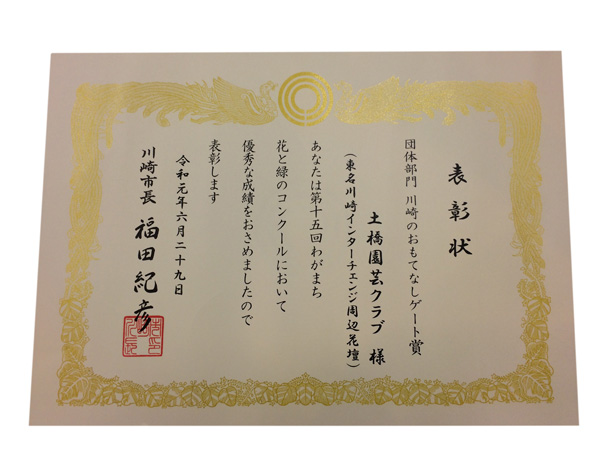 表彰状
団体部門 川崎のおもてなしゲート賞
土橋園芸クラブ 様
(東名川崎インターチェンジ周辺花壇)
あなたは第十五回わがまち
花と緑のコンクールにおいて
優秀な成績をおさめましたので
表彰します
令和元年六月二十九日
川崎市長 福田紀彦